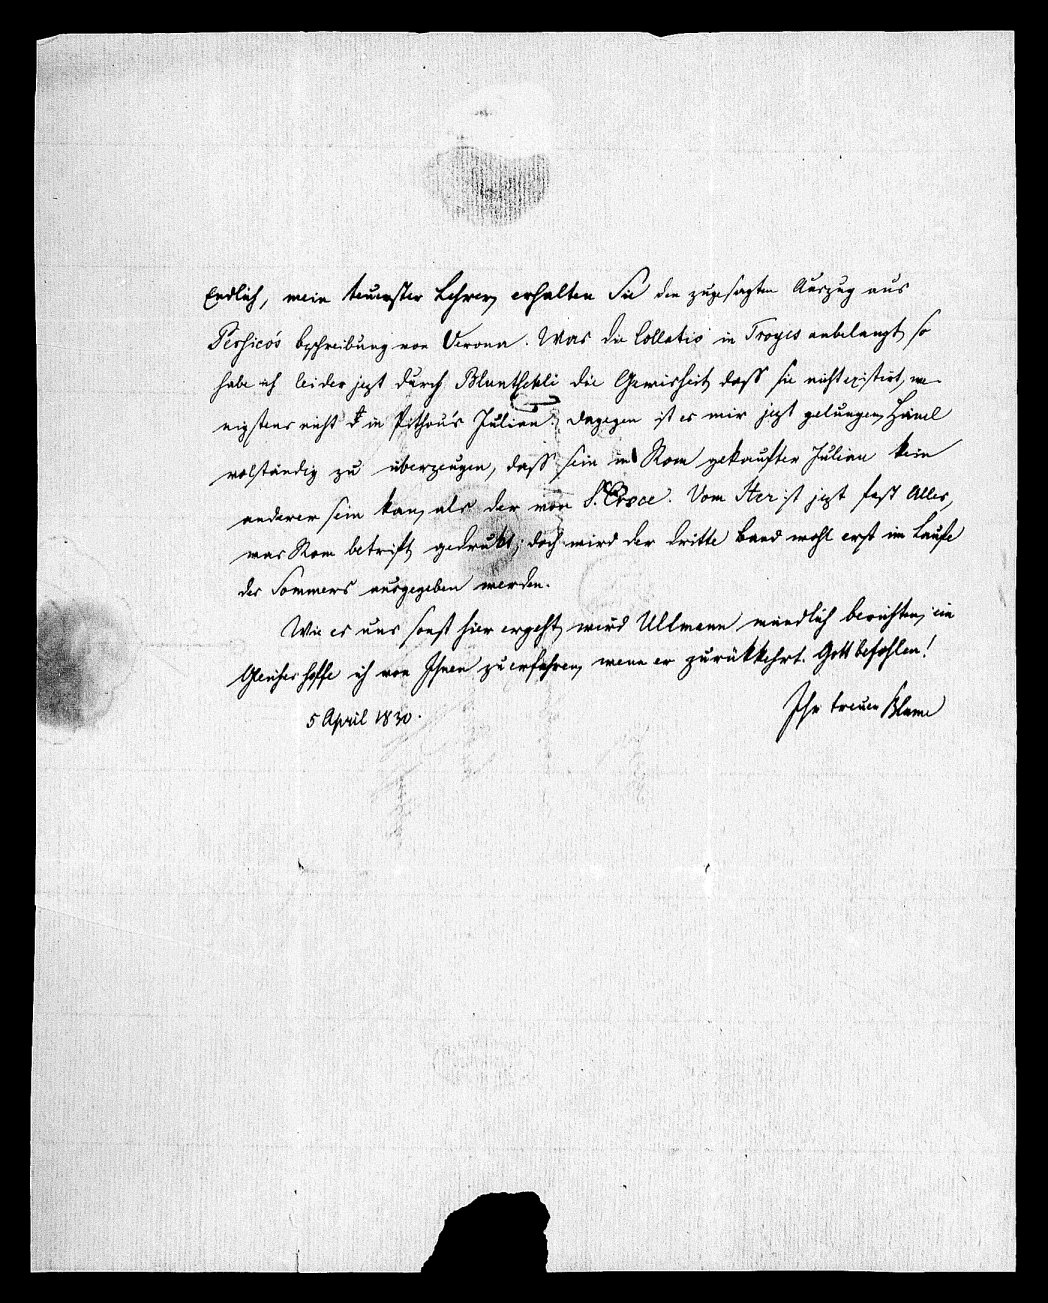 Endlich, mein teuerster Lehrer, erhalten Sie den zugesagten Auszug aus
Persico's Beschreibung von Verona. Was die Collatio in Troyes anbelangt, so
habe ich leider jezt durch Bluntschli die Gewisheit, dass sie nicht existirt, we-
nigstens nicht in Pithou's Julian. Dagegen ist es mir jezt gelungen, Hänel
volständig zu überzeugen, dass sein in Rom gekaufter Julian kein
anderer sein kan, als der von S. Croce. Vom Iter ist jezt fast Alles,
was Rom betrift, gedrukt; doch wird der dritte Band wohl erst im Laufe
des Sommers ausgegeben werden.
Wie es uns sonst hier ergeht, wird Ullmann mündlich berichten; ein
Gleiches hoffe ich von Ihnen zu erfahren, wenn er zurükkehrt. Gott befohlen!
5 April 1830.
Ihr treuer Blume